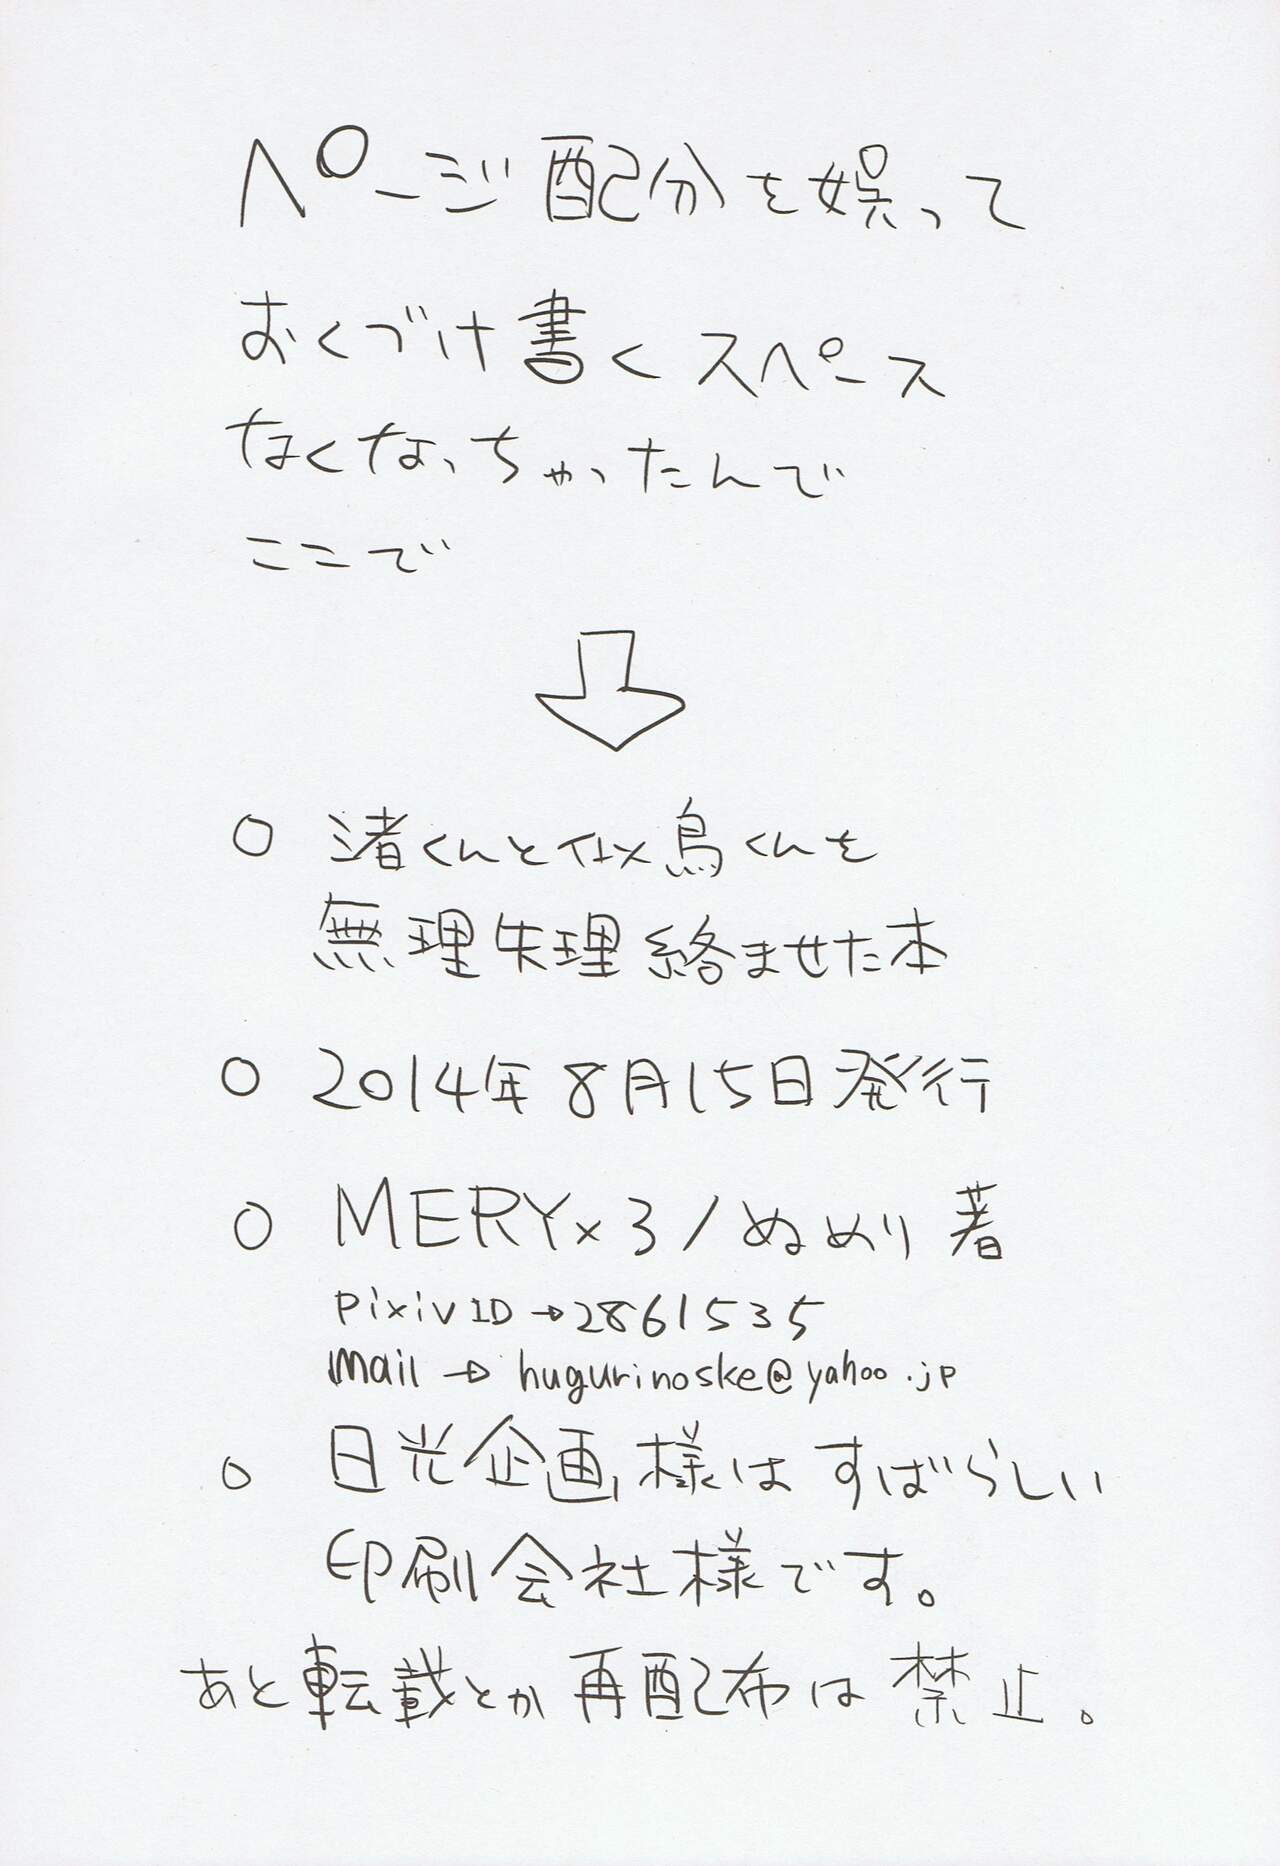 ページ配分を娯って
おくづけ書くスペース
なくなっちゃったんで
ここで
○ 渚くんと似鳥くんを
無理矢理絡ませた本
○ 2014年8月15日発行
○ MERY×3/ぬめり 著
pixiv ID→2861535
mail → hugurinoske@yahoo.jp
○ 日光企画様はすばらしい
印刷会社様です。
あと転載とか再配布は禁止。